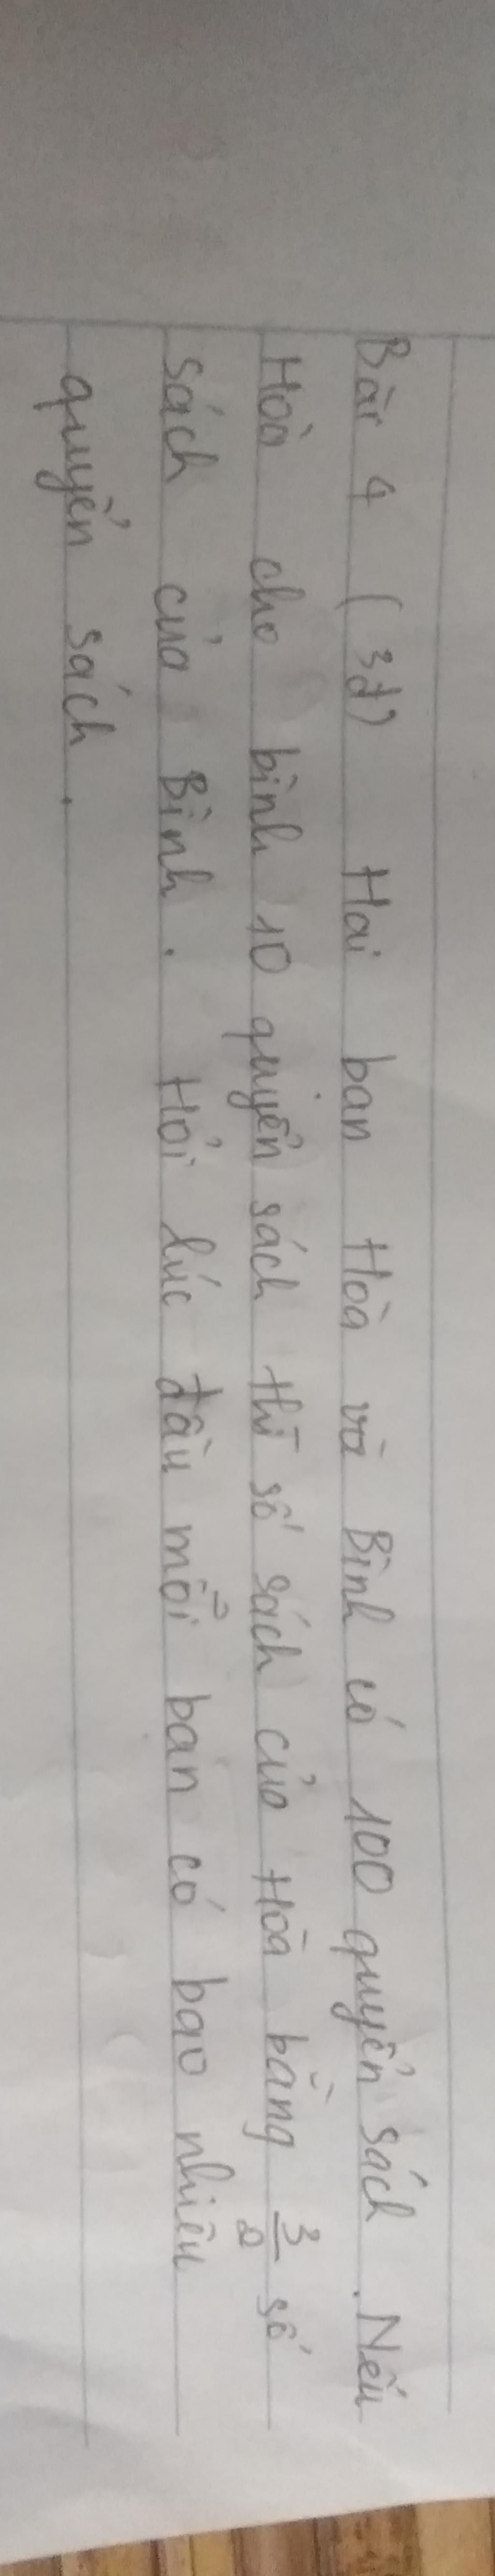 Bài 4 (3đ) Hai bạn Hoà và Bình có 100 quyển sách. Nếu
Hoà cho bình 10 quyển sách thì số sách của Hoà bằng 3/2 số
sách của Bình. Hỏi lúc đầu mỗi bạn có bao nhiêu
quyển sách.